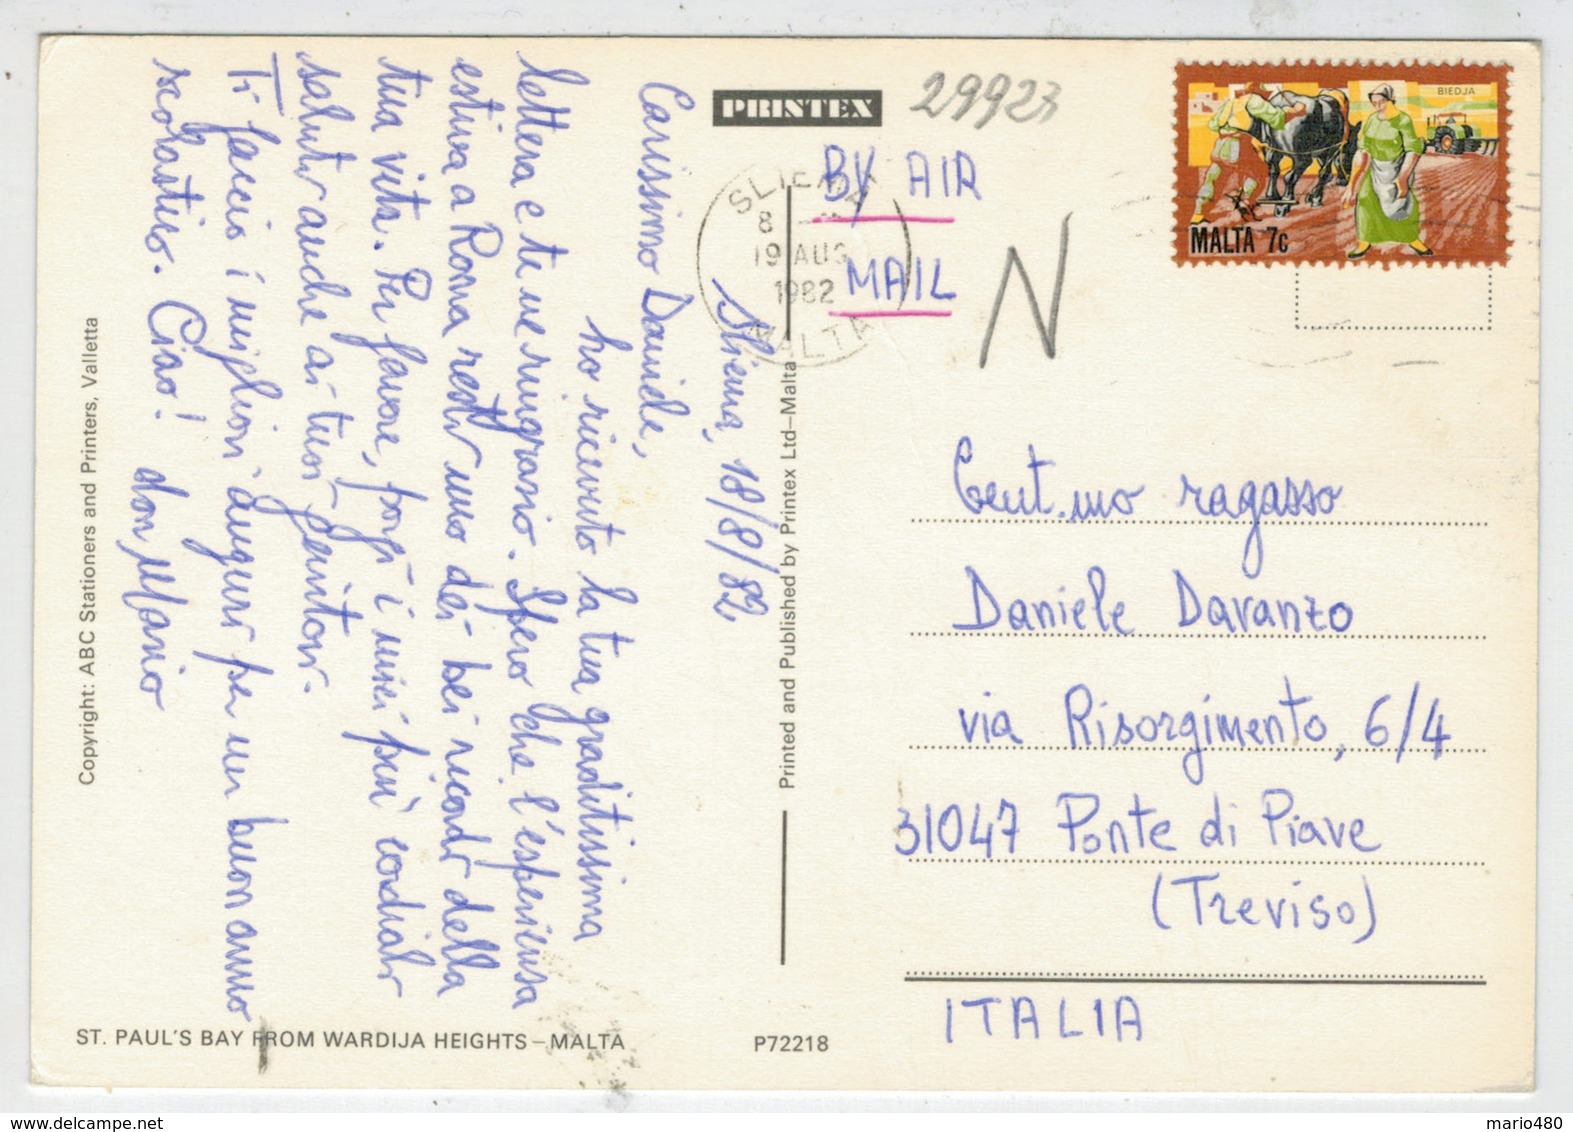 PRINTEX
29923
BY AIR
MAIL
SLIEMA
8
19 AUG
1982
MALTA
N
BIEDJA
MALTA 7c
Sliema, 18/8/82
Carissimo Daniele,
ho ricevuto la tua graditissima
lettera e te ne ringrazio. Spero che l'esperienza
estiva a Roma resti uno dei bei ricordi della
tua vita. Per favore, porgi i miei più cordiali
saluti anche ai tuoi genitori.
Ti faccio i migliori auguri per un buon anno
scolastico. Ciao! don Mario
Gent.mo ragazzo
Daniele Davanzo
via Risorgimento, 6/4
31047 Ponte di Piave
(Treviso)
ITALIA
Copyright: ABC Stationers and Printers, Valletta
Printed and Published by Printex Ltd–Malta
ST. PAUL'S BAY FROM WARDIJA HEIGHTS – MALTA
P72218
mario480